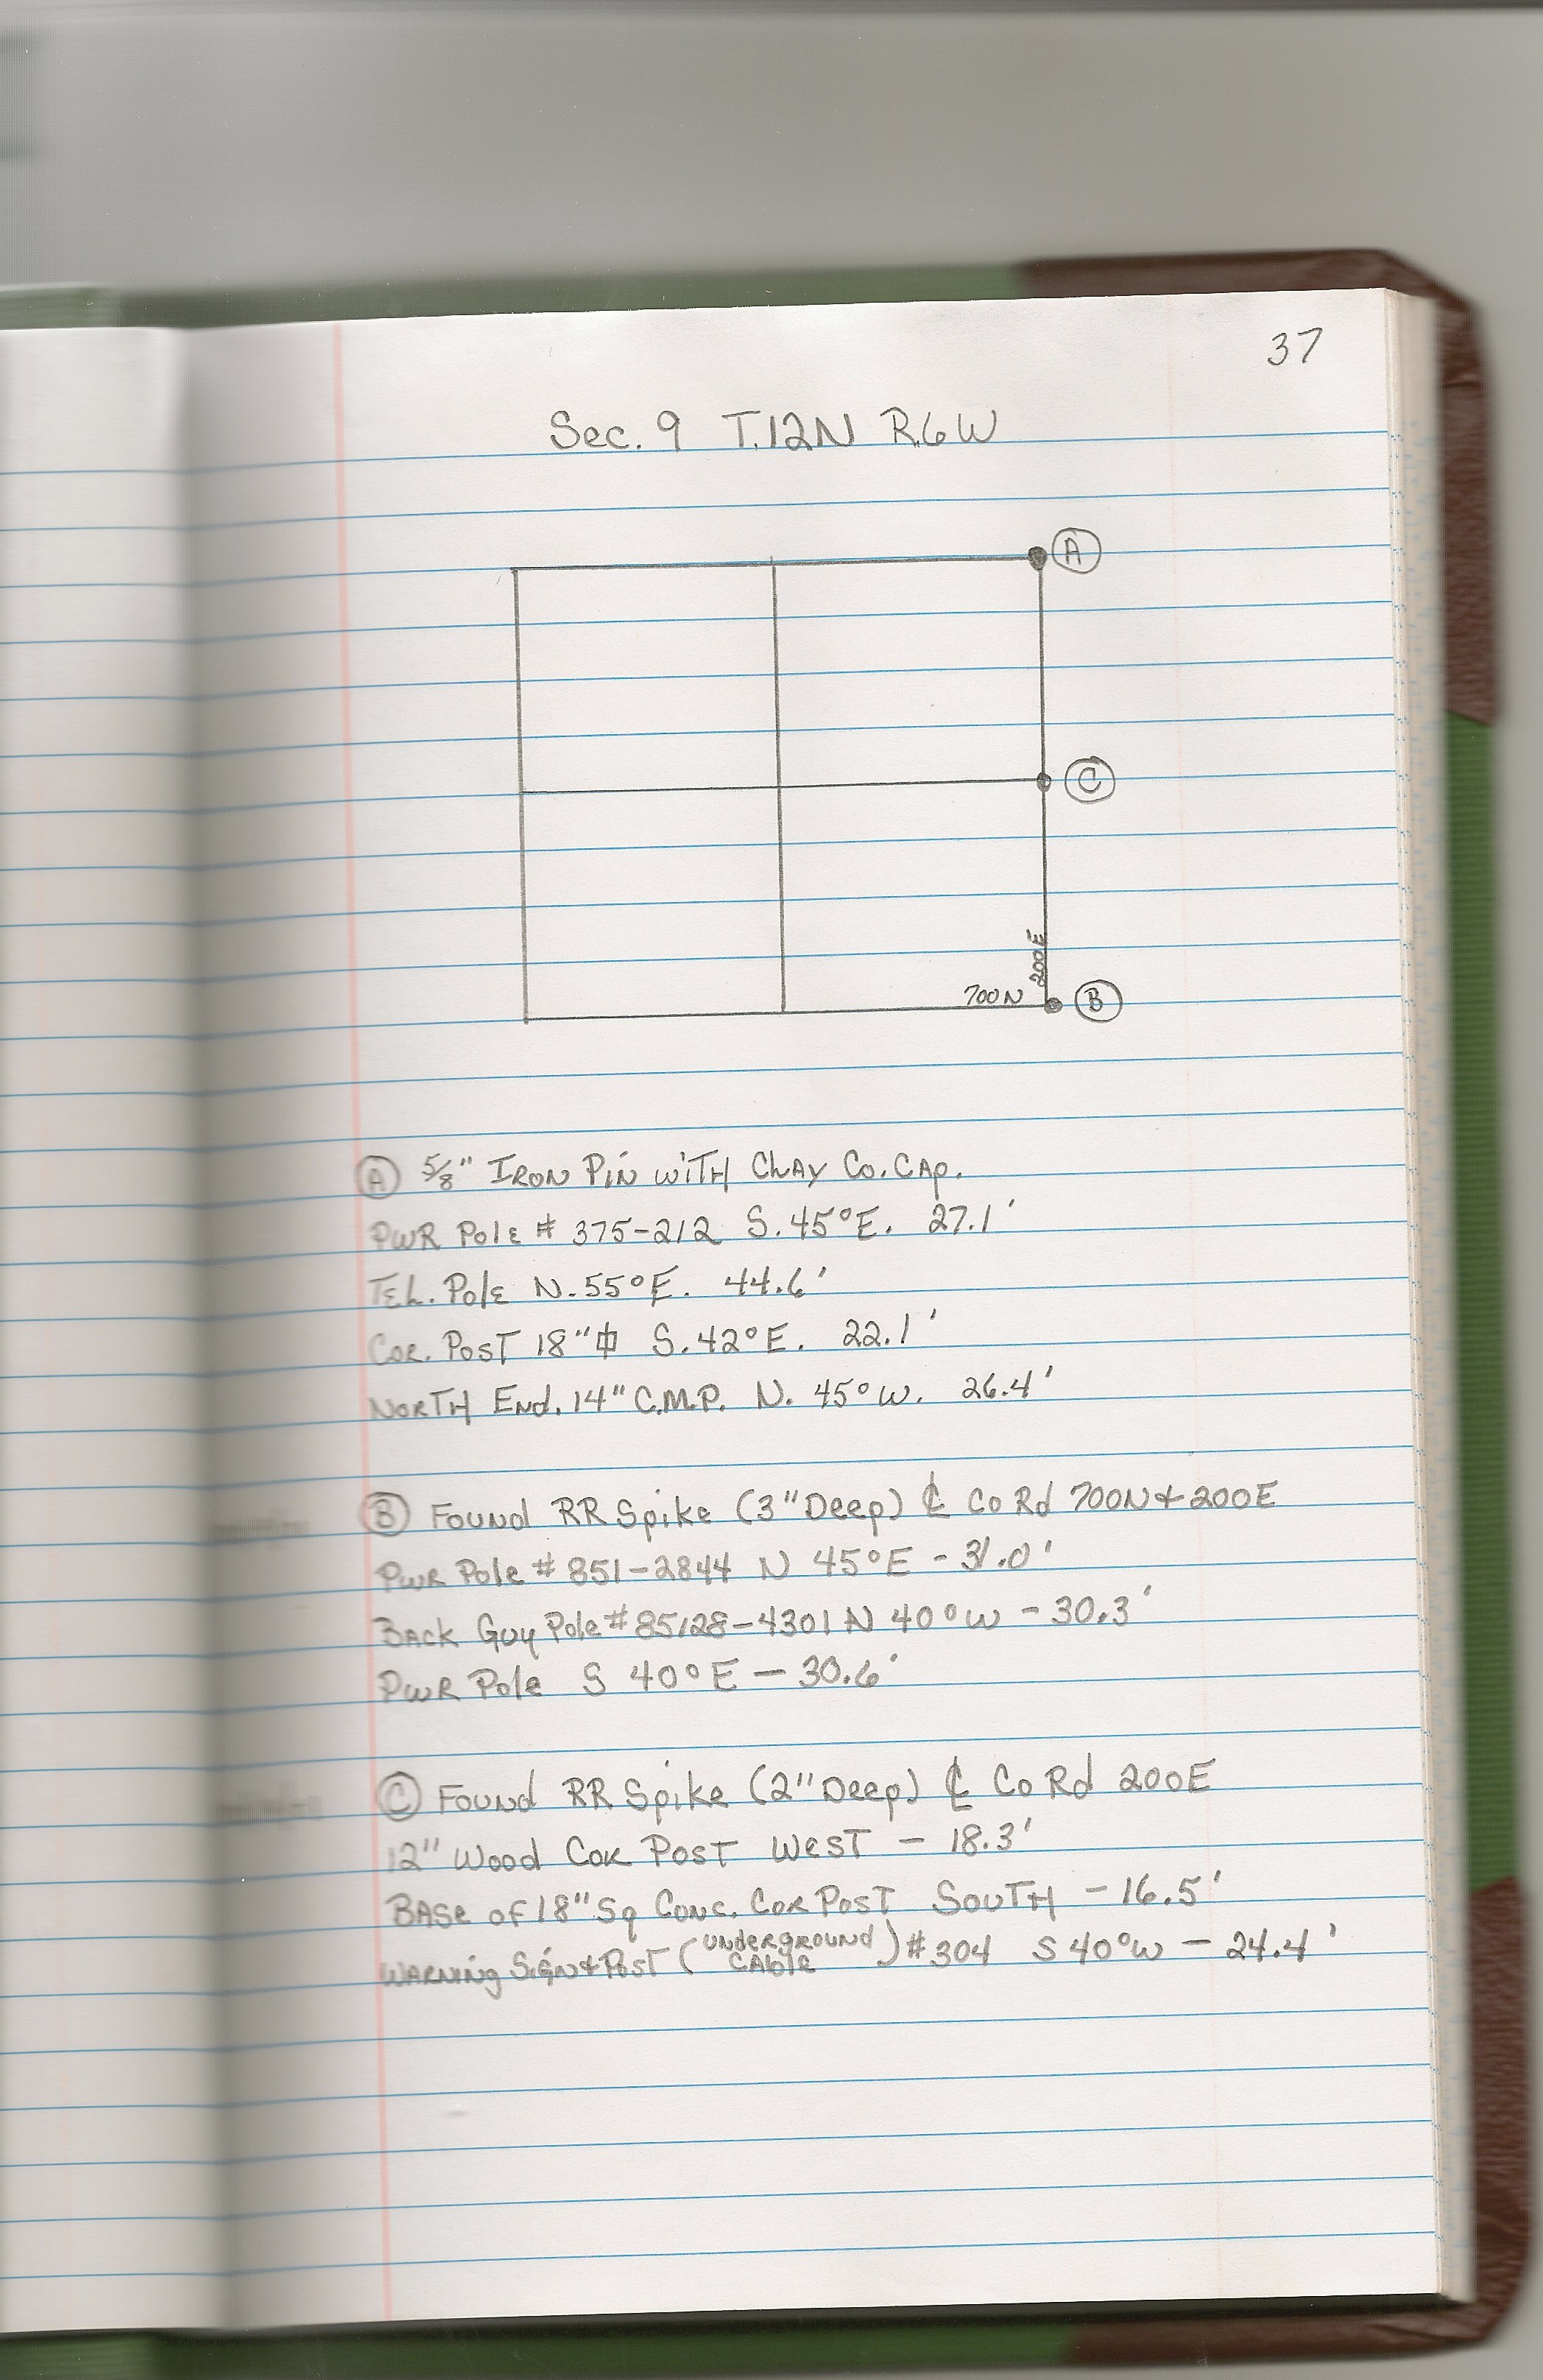 37
Sec. 9 T.12N R.6W
A
C
200E
700N
B
A 5/8" Iron Pin with Clay Co. Cap.
PWR Pole # 375-212 S. 45°E. 27.1'
Tel. Pole N. 55°E. 44.6'
Cor. Post 18"⌀ S. 42°E. 22.1'
North End. 14" C.M.P. N. 45°W. 26.4'
B Found RR Spike (3" Deep) ℄ Co Rd 700N & 200E
Pwr Pole # 851-2844 N 45°E - 31.0'
Back Guy Pole # 85128-4301 N 40°W - 30.3'
Pwr Pole S 40°E - 30.6'
C Found RR Spike (2" Deep) ℄ Co Rd 200E
12" Wood Cor Post West - 18.3'
Base of 18" Sq Conc. Cor Post South - 16.5'
Warning Sign & Post (Underground Cable) # 304 S 40°W - 24.4'